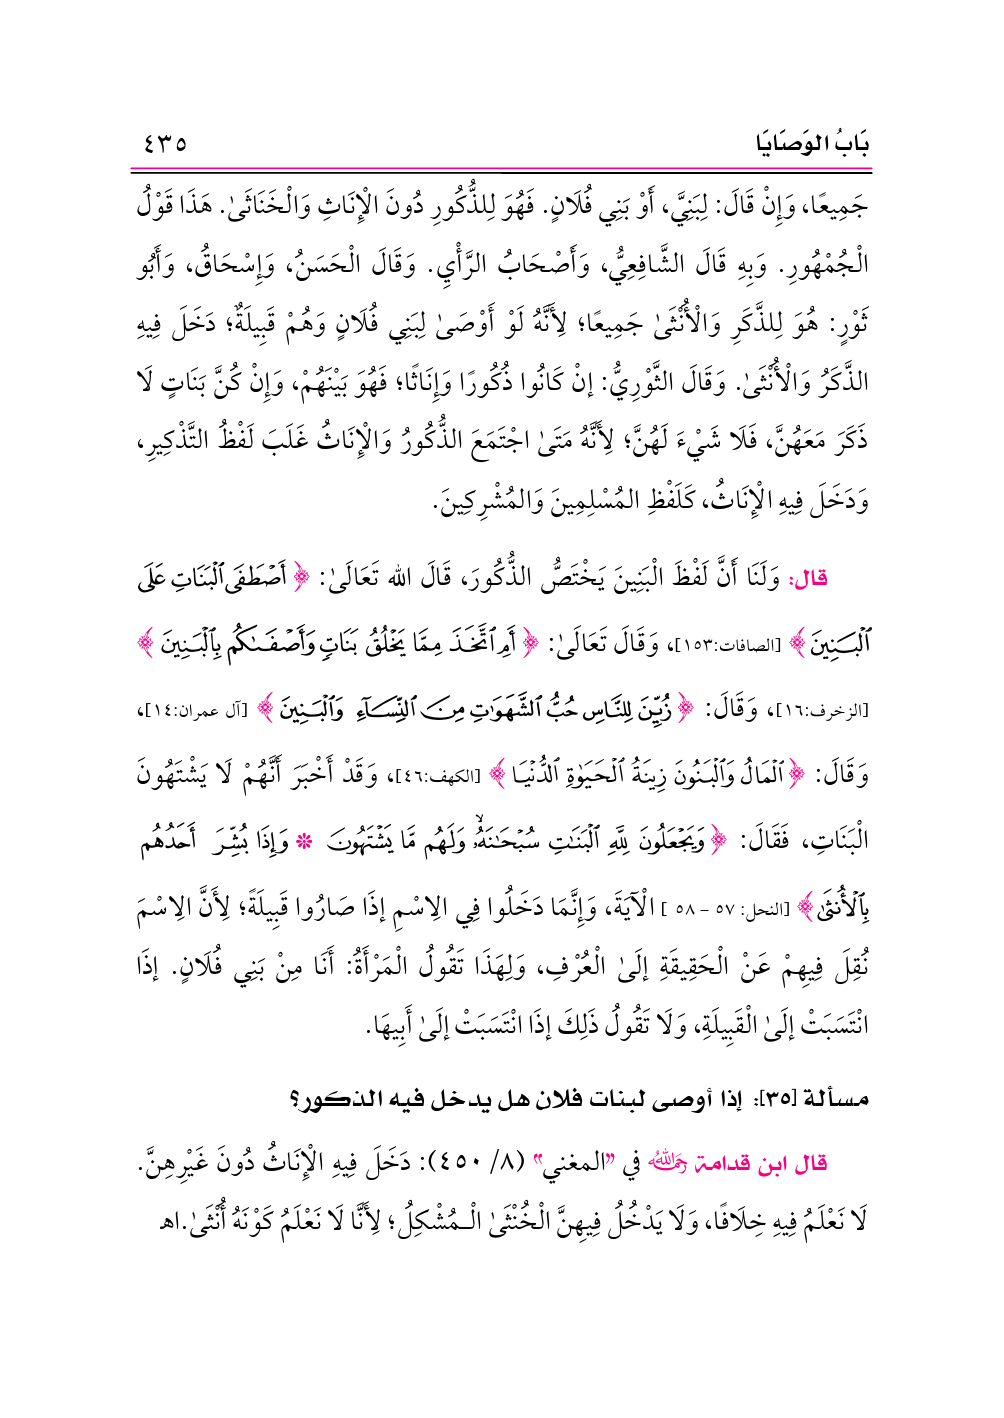 بَابُ الوَصَايَا ٤٣٥
جَمِيعًا، وَإِنْ قَالَ: لِبَنِيَّ، أَوْ بَنِي فُلَانٍ. فَهُوَ لِلذُّكُورِ دُونَ الْإِنَاثِ وَالْخَنَاثَىٰ. هَذَا قَوْلُ
الْجُمْهُورِ. وَبِهِ قَالَ الشَّافِعِيُّ، وَأَصْحَابُ الرَّأْيِ. وَقَالَ الْحَسَنُ، وَإِسْحَاقُ، وَأَبُو
ثَوْرٍ: هُوَ لِلذَّكَرِ وَالْأُنْثَىٰ جَمِيعًا؛ لِأَنَّهُ لَوْ أَوْصَىٰ لِبَنِي فُلَانٍ وَهُمْ قَبِيلَةٌ؛ دَخَلَ فِيهِ
الذَّكَرُ وَالْأُنْثَىٰ. وَقَالَ الثَّوْرِيُّ: إنْ كَانُوا ذُكُورًا وَإِنَاثًا؛ فَهُوَ بَيْنَهُمْ، وَإِنْ كُنَّ بَنَاتٍ لَا
ذَكَرَ مَعَهُنَّ، فَلَا شَيْءَ لَهُنَّ؛ لِأَنَّهُ مَتَىٰ اجْتَمَعَ الذُّكُورُ وَالْإِنَاثُ غَلَبَ لَفْظُ التَّذْكِيرِ،
وَدَخَلَ فِيهِ الْإِنَاثُ، كَلَفْظِ المُسْلِمِينَ وَالمُشْرِكِينَ.
قال: وَلَنَا أَنَّ لَفْظَ الْبَنِينَ يَخْتَصُّ الذُّكُورَ، قَالَ الله تَعَالَىٰ: ﴿أَصْطَفَى ٱلْبَنَاتِ عَلَى
ٱلْبَنِينَ﴾ [الصافات:١٥٣]، وَقَالَ تَعَالَىٰ: ﴿أَمِ ٱتَّخَذَ مِمَّا يَخْلُقُ بَنَاتٍ وَأَصْفَىٰكُم بِٱلْبَنِينَ﴾
[الزخرف:١٦]، وَقَالَ: ﴿زُيِّنَ لِلنَّاسِ حُبُّ ٱلشَّهَوَٰتِ مِنَ ٱلنِّسَآءِ وَٱلْبَنِينَ﴾ [آل عمران:١٤]،
وَقَالَ: ﴿ٱلْمَالُ وَٱلْبَنُونَ زِينَةُ ٱلْحَيَوٰةِ ٱلدُّنْيَا﴾ [الكهف:٤٦]، وَقَدْ أَخْبَرَ أَنَّهُمْ لَا يَشْتَهُونَ
الْبَنَاتِ، فَقَالَ: ﴿وَيَجْعَلُونَ لِلَّهِ ٱلْبَنَٰتِ سُبْحَٰنَهُۥۙ وَلَهُم مَّا يَشْتَهُونَ * وَإِذَا بُشِّرَ أَحَدُهُم
بِٱلْأُنثَىٰ﴾ [النحل: ٥٧ - ٥٨ ] الْآيَةَ، وَإِنَّمَا دَخَلُوا فِي الِاسْمِ إذَا صَارُوا قَبِيلَةً؛ لِأَنَّ الِاسْمَ
نُقِلَ فِيهِمْ عَنْ الْحَقِيقَةِ إلَىٰ الْعُرْفِ، وَلِهَذَا تَقُولُ الْمَرْأَةُ: أَنَا مِنْ بَنِي فُلَانٍ. إذَا
انْتَسَبَتْ إلَىٰ الْقَبِيلَةِ، وَلَا تَقُولُ ذَلِكَ إذَا انْتَسَبَتْ إلَىٰ أَبِيهَا.
مسألة [٣٥]: إذا أوصى لبنات فلان هل يدخل فيه الذكور؟
قال ابن قدامة رحمه الله في "المغني" (٨/ ٤٥٠): دَخَلَ فِيهِ الْإِنَاثُ دُونَ غَيْرِهِنَّ.
لَا نَعْلَمُ فِيهِ خِلَافًا، وَلَا يَدْخُلُ فِيهِنَّ الْخُنْثَىٰ الْـمُشْكِلُ؛ لِأَنَّا لَا نَعْلَمُ كَوْنَهُ أُنْثَىٰ.اهـ